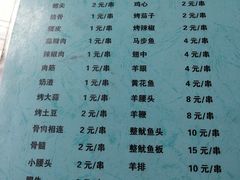 2 元/串 鸡心 2 元/串
排骨 1 元/串 烤茄子 2 元/串
腰皮 1 元/串 烤辣椒 2 元/串
蒜辣肉 1 元/串 马步鱼 4 元/串
辣椒肉 1 元/串 翅中 4 元/串
肉筋 1 元/串 羊眼 4 元/串
奶渣 1 元/串 黄花鱼 4 元/串
烤大蒜 1 元/串 羊腰头 5 元/串
烤土豆 2 元/串 羊鞭 8 元/串
骨肉相连 2 元/串 整鱿鱼头 10 元/串
骨髓 2 元/串 整鱿鱼板 15 元/串
小腰头 2 元/串 羊排 15 元/串
2 元/串